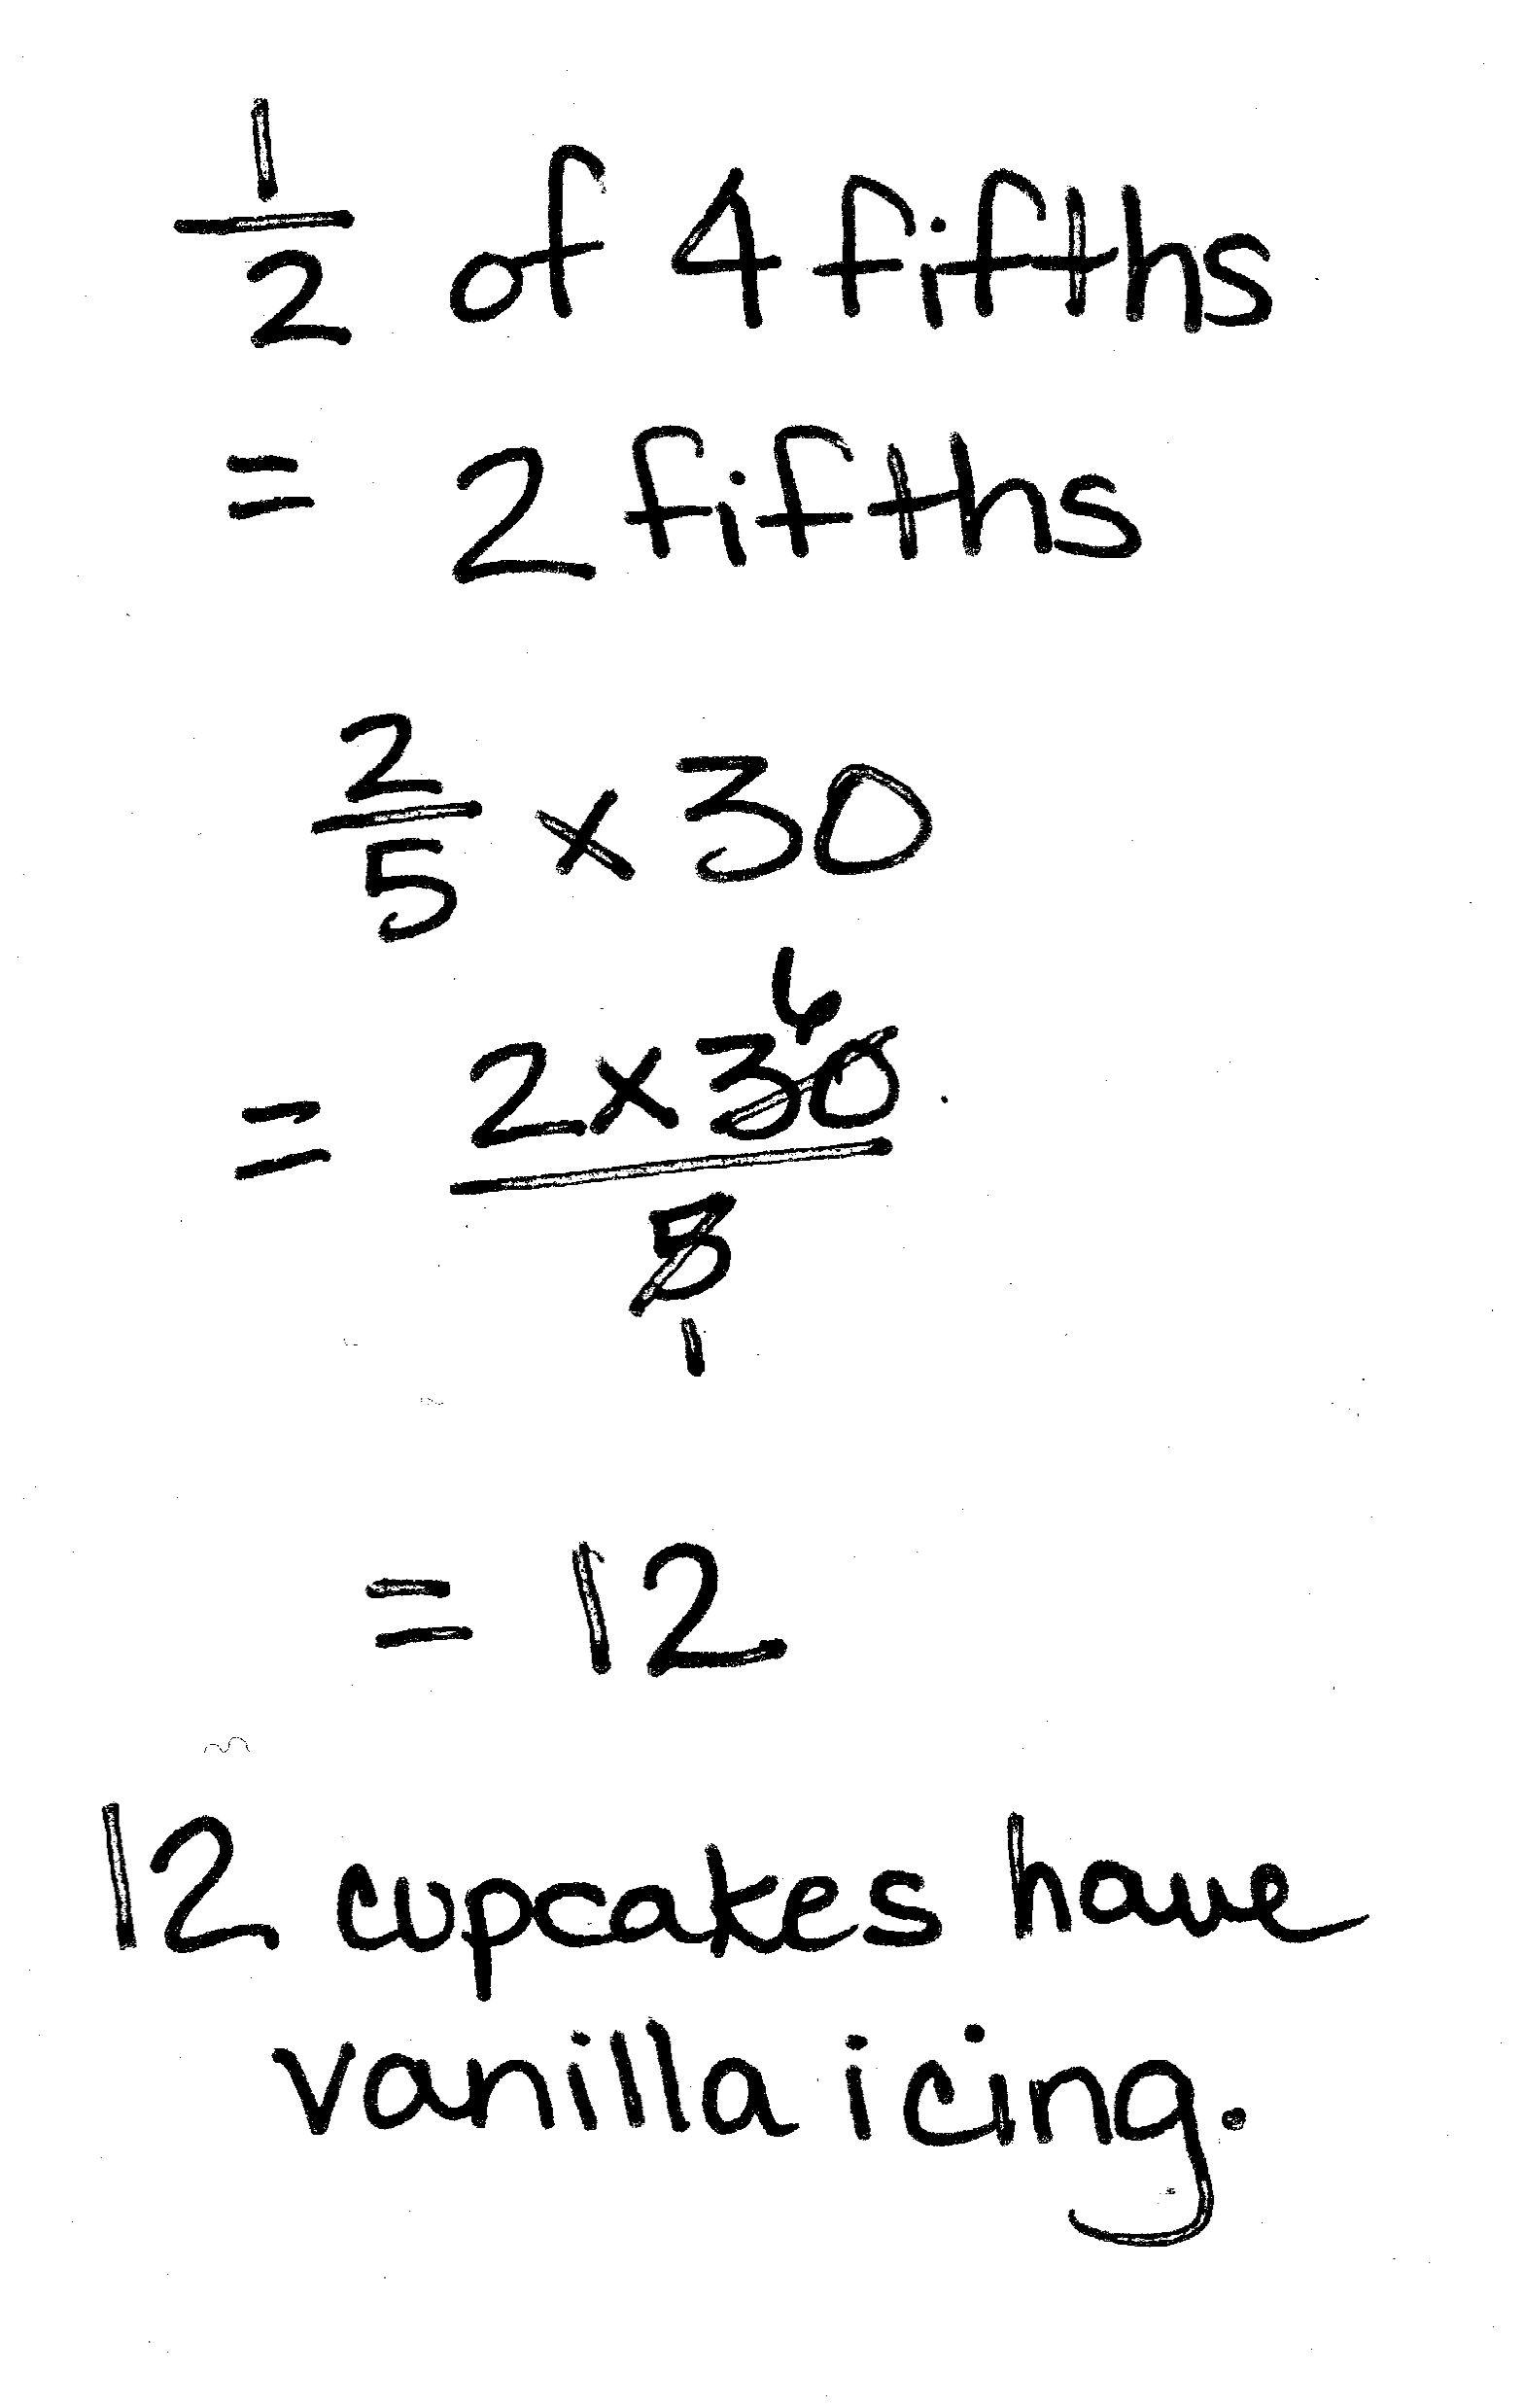 1/2 of 4 fifths
= 2 fifths
2/5 × 30
= 2 × 30 6 / 5 1
= 12
12 cupcakes have
vanilla icing.